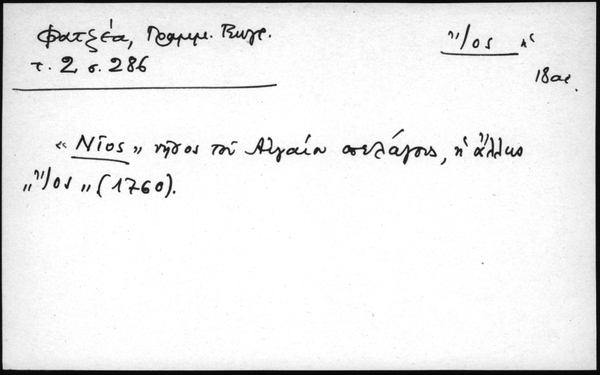 Φατζέα, Γραμμ. Γεωγρ.
τ. 2, σ. 286
Ἴος ἡ
18 αι.
« Νῖος » νῆσος τοῦ Αἰγαίου πελάγους, ἡ ἄλλως
„ Ἴος „ (1760).